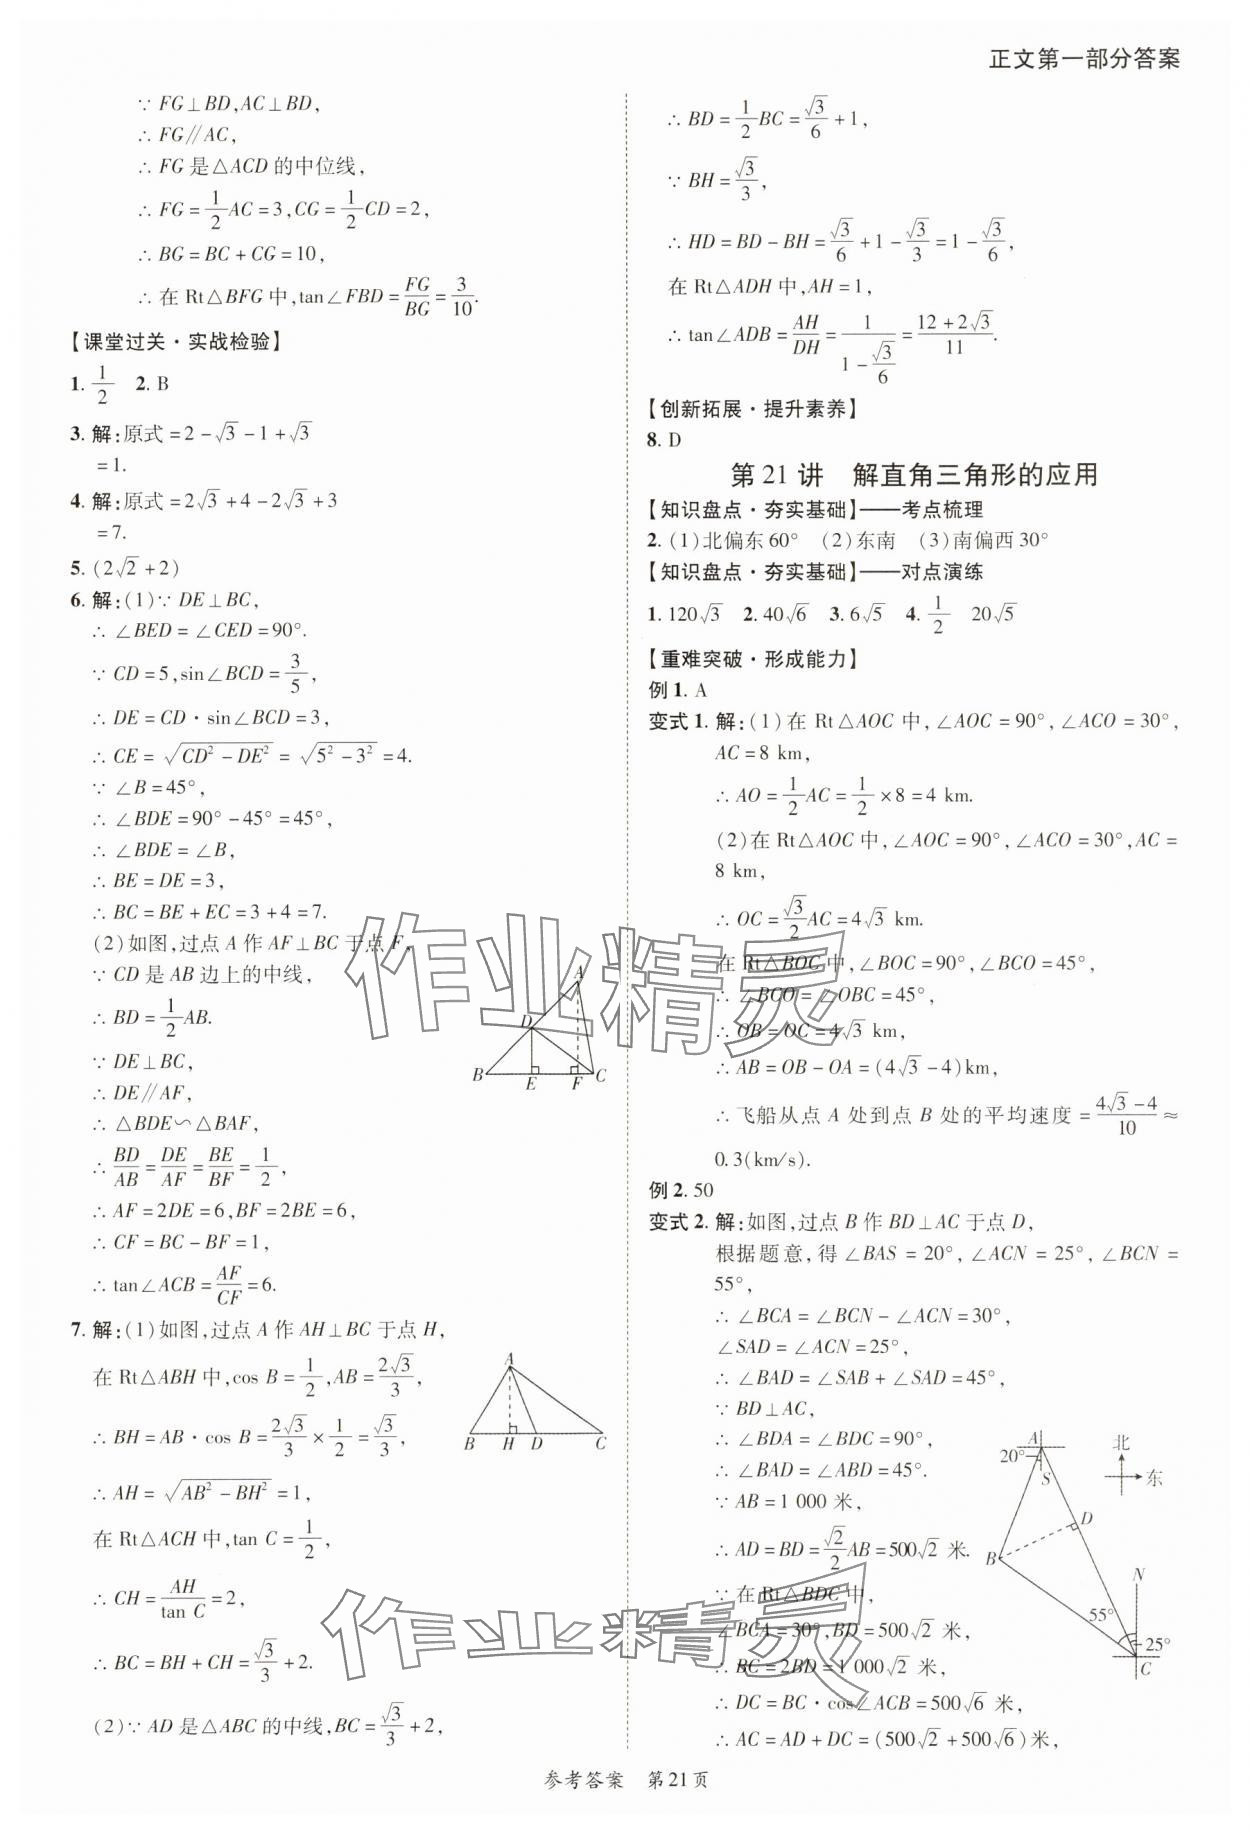 正文第一部分答案
∵ FG⊥BD,AC⊥BD,
∴ FG∥AC,
∴ FG 是△ACD 的中位线,
∴ FG=1/2AC=3,CG=1/2CD=2,
∴ BG=BC+CG=10,
∴ 在 Rt△BFG 中,tan∠FBD=FG/BG=3/10.
【课堂过关·实战检验】
1. 1/2 2. B
3. 解:原式=2-√3-1+√3
=1.
4. 解:原式=2√3+4-2√3+3
=7.
5. (2√2+2)
6. 解:(1)∵ DE⊥BC,
∴ ∠BED=∠CED=90°.
∵ CD=5,sin∠BCD=3/5,
∴ DE=CD·sin∠BCD=3,
∴ CE=√(CD²-DE²)=√(5²-3²)=4.
∵ ∠B=45°,
∴ ∠BDE=90°-45°=45°,
∴ ∠BDE=∠B,
∴ BE=DE=3,
∴ BC=BE+EC=3+4=7.
(2)如图,过点 A 作 AF⊥BC 于点 F,
∵ CD 是 AB 边上的中线,
∴ BD=1/2AB.
∵ DE⊥BC,
∴ DE∥AF,
∴ △BDE∽△BAF,
∴ BD/AB=DE/AF=BE/BF=1/2,
∴ AF=2DE=6,BF=2BE=6,
∴ CF=BC-BF=1,
∴ tan∠ACB=AF/CF=6.
A
D
B E F C
7. 解:(1)如图,过点 A 作 AH⊥BC 于点 H,
在 Rt△ABH 中,cos B=1/2,AB=2√3/3,
∴ BH=AB·cos B=2√3/3×1/2=√3/3,
∴ AH=√(AB²-BH²)=1,
在 Rt△ACH 中,tan C=1/2,
∴ CH=AH/tan C=2,
∴ BC=BH+CH=√3/3+2.
(2)∵ AD 是△ABC 的中线,BC=√3/3+2,
A
B H D C
∴ BD=1/2BC=√3/6+1,
∵ BH=√3/3,
∴ HD=BD-BH=√3/6+1-√3/3=1-√3/6,
在 Rt△ADH 中,AH=1,
∴ tan∠ADB=AH/DH=1/(1-√3/6)=(12+2√3)/11.
【创新拓展·提升素养】
8. D
第 21 讲 解直角三角形的应用
【知识盘点·夯实基础】——考点梳理
2. (1)北偏东 60° (2)东南 (3)南偏西 30°
【知识盘点·夯实基础】——对点演练
1. 120√3 2. 40√6 3. 6√5 4. 1/2 20√5
【重难突破·形成能力】
例 1. A
变式 1. 解:(1)在 Rt△AOC 中,∠AOC=90°,∠ACO=30°,
AC=8 km,
∴ AO=1/2AC=1/2×8=4 km.
(2)在 Rt△AOC 中,∠AOC=90°,∠ACO=30°,AC=
8 km,
∴ OC=√3/2AC=4√3 km.
在 Rt△BOC 中,∠BOC=90°,∠BCO=45°,
∴ ∠BCO=∠OBC=45°,
∴ OB=OC=4√3 km,
∴ AB=OB-OA=(4√3-4)km,
∴ 飞船从点 A 处到点 B 处的平均速度=(4√3-4)/10≈
0.3(km/s).
例 2. 50
变式 2. 解:如图,过点 B 作 BD⊥AC 于点 D,
根据题意,得 ∠BAS=20°,∠ACN=25°,∠BCN=
55°,
∴ ∠BCA=∠BCN-∠ACN=30°,
∠SAD=∠ACN=25°,
∴ ∠BAD=∠SAB+∠SAD=45°,
∵ BD⊥AC,
∴ ∠BDA=∠BDC=90°,
∴ ∠BAD=∠ABD=45°.
∵ AB=1 000 米,
∴ AD=BD=√2/2AB=500√2 米.
∵ 在 Rt△BDC 中,
∠BCA=30°,BD=500√2 米,
∴ BC=2BD=1 000√2 米,
∴ DC=BC·cos∠ACB=500√6 米,
∴ AC=AD+DC=(500√2+500√6)米,
A 北
20°
S 东
D
B
N
55°
25°
C
作业精灵
作业精灵
参考答案 第 21 页